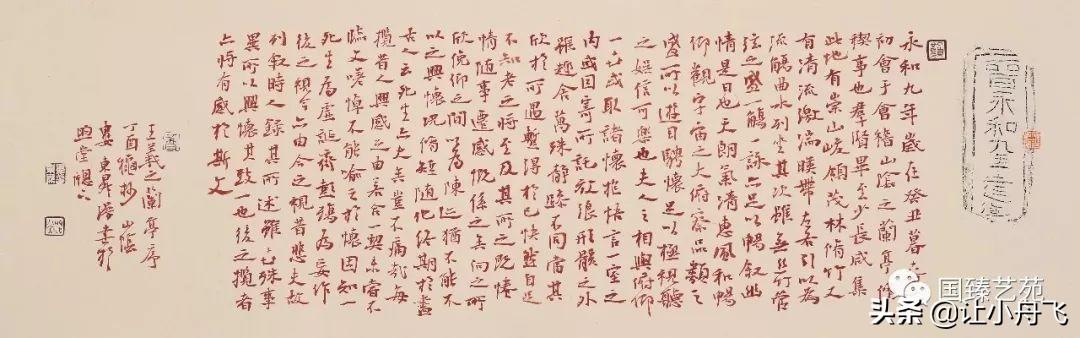 晉永和九年
永和九年歲在癸丑暮春之
初會于會稽山陰之蘭亭脩
禊事也群賢畢至少長咸集
此地有崇山峻領茂林脩竹又
有清流激湍暎帶左右引以為
流觴曲水列坐其次雖無絲竹管
弦之盛一觴一詠亦足以暢敘幽
情是日也天朗氣清惠風和暢
仰觀宇宙之大俯察品類之
盛所以遊目騁懷足以極視聽
之娛信可樂也夫人之相與俯仰
一世或取諸懷抱悟言一室之
內或因寄所託放浪形骸之外
雖趣舍萬殊靜躁不同當其
欣於所遇暫得於己快然自足
不知老之將至及其所之既惓
情隨事遷感慨係之矣向之所
欣俛仰之間以為陳迹猶不能不
以之興懷況脩短隨化終期於盡
古人云死生亦大矣豈不痛哉每
攬昔人興感之由若合一契未嘗不
臨文嗟悼不能喻之於懷固知一
死生為虛誕齊彭殤為妄作
後之視今亦由今之視昔悲夫故
列敘時人錄其所述雖世殊事
異所以興懷其致一也後之攬者
亦將有感於斯文
王羲之蘭亭序
丁酉 抄 山陰
國臻艺苑
头条@让小舟飞